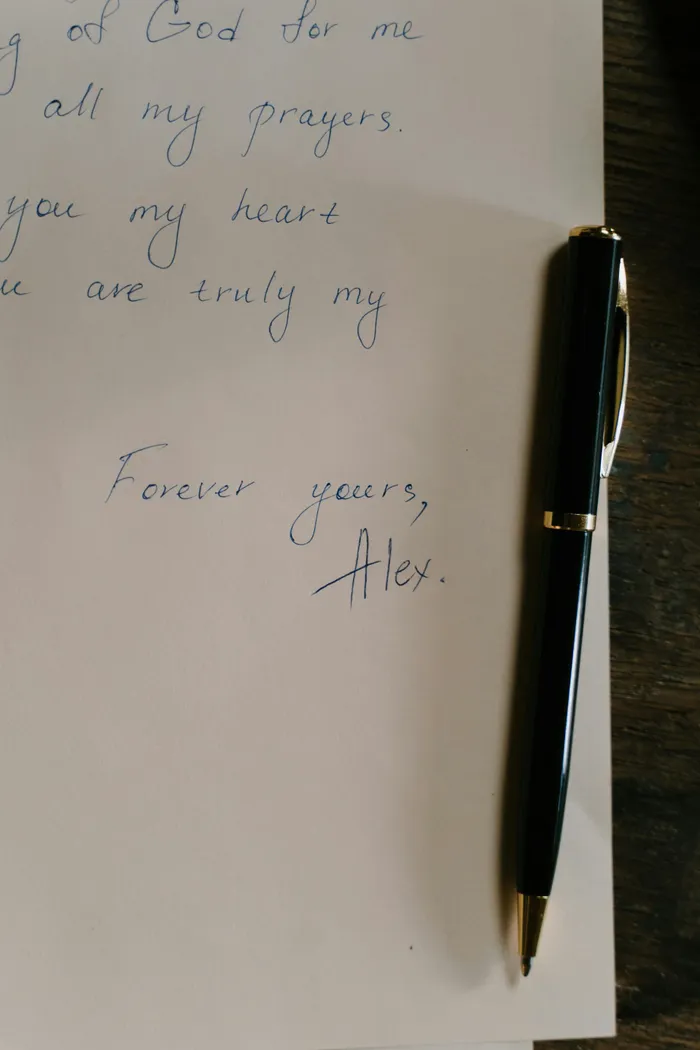 of God for me
all my prayers.
you my heart
are truly my
Forever yours,
Alex.